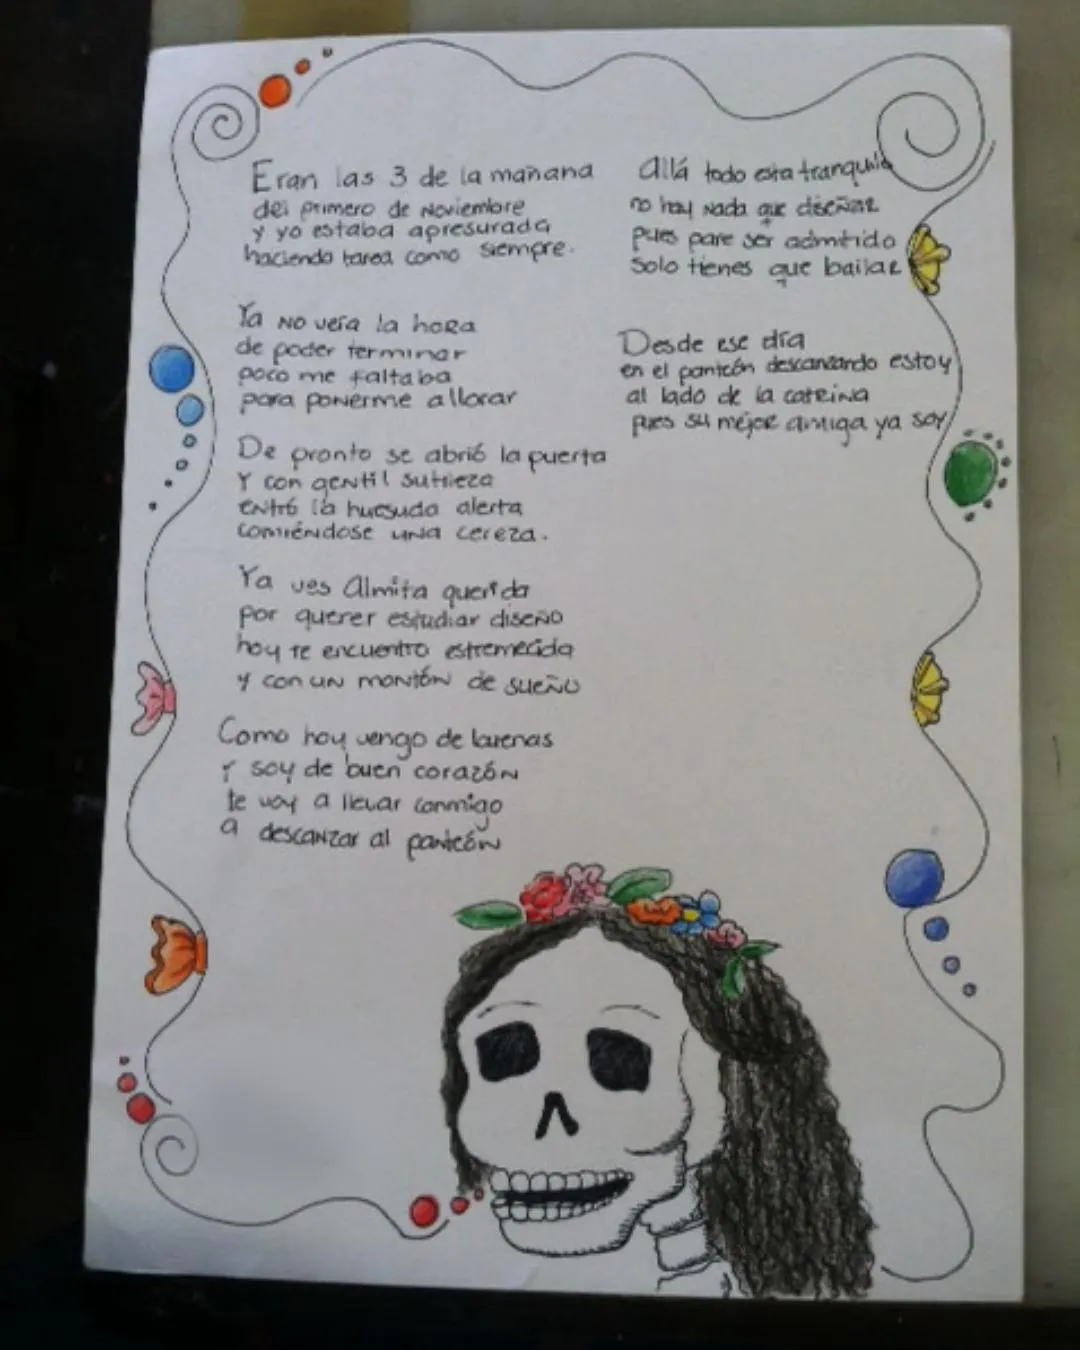 Eran las 3 de la mañana
del primero de Noviembre
y yo estaba apresurada
haciendo tarea como siempre.
Ya no veía la hora
de poder terminar
poco me faltaba
para ponerme a llorar
De pronto se abrió la puerta
Y con gentil sutileza
entró la huesuda alerta
comiéndose una cereza.
Ya ves Almita querida
por querer estudiar diseño
hoy te encuentro estremecida
y con un montón de sueño
Como hoy vengo de buenas
Y soy de buen corazón
te voy a llevar conmigo
a descanzar al panteón
Allá todo esta tranquilo
no hay nada que diseñar
pues para ser admitido
solo tienes que bailar
Desde ese día
en el panteón descanzando estoy
al lado de la catrina
pues su mejor amiga ya soy